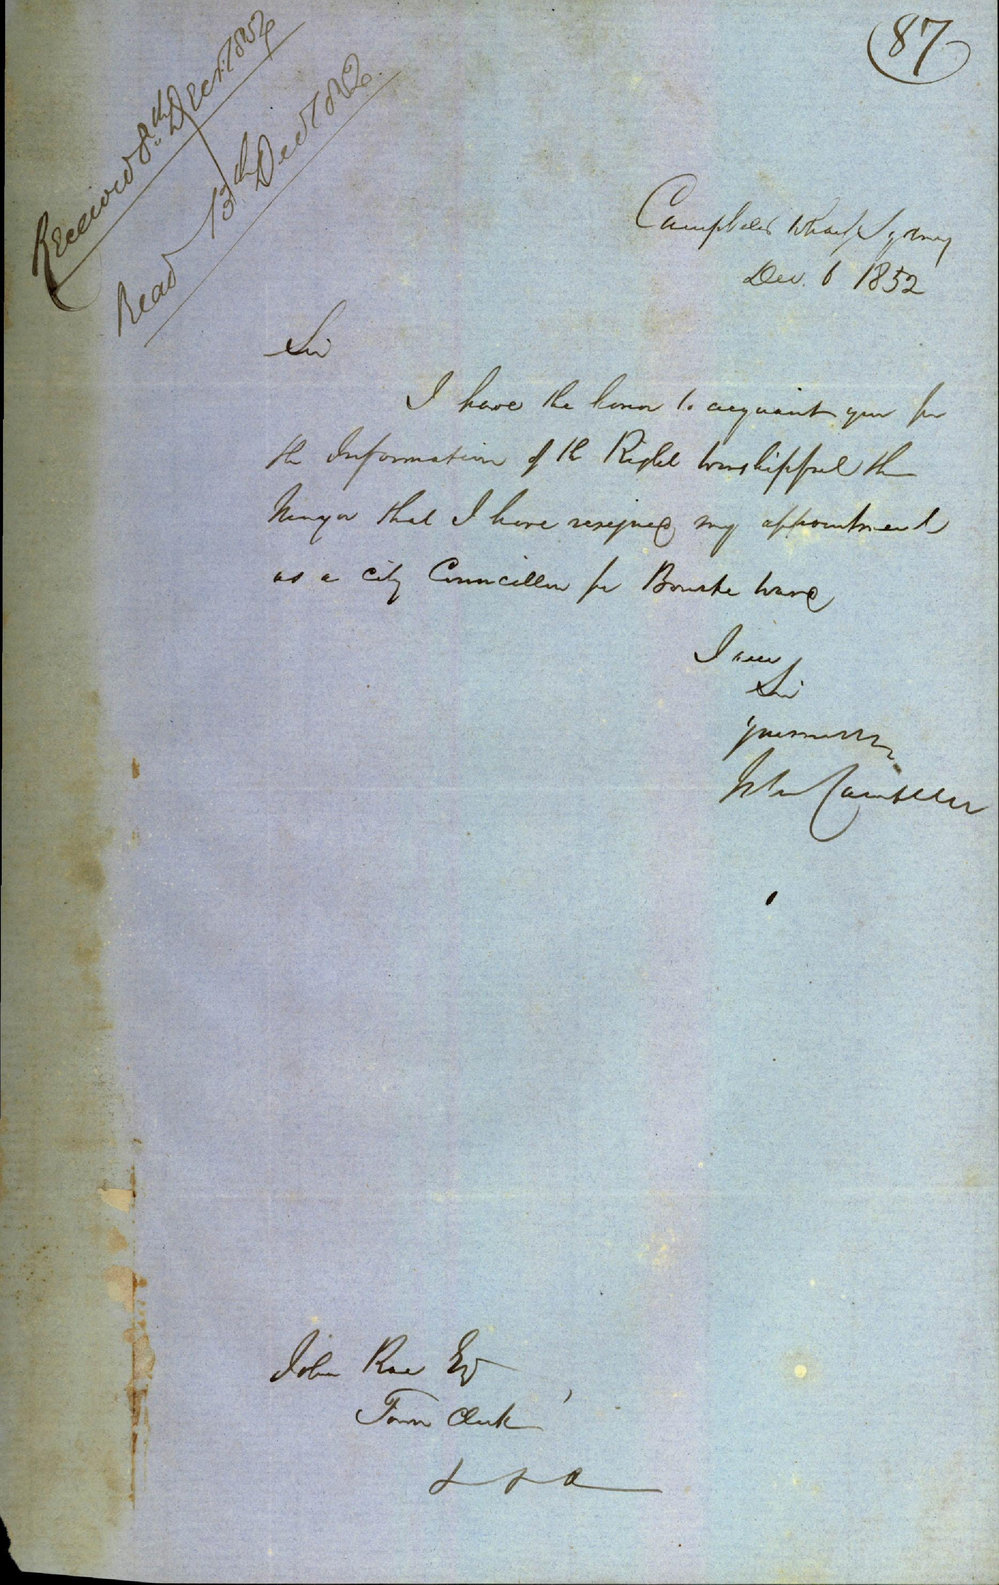 87
Received 8th Decr. 1852
Read 13th Decr 1852
Campbells Wharf Sydney
Dec. 6 1852
Sir
I have the honor to acquaint you for
the Information of the Right Worshipful the
Mayor that I have resigned my appointment
as a City Councillor for Bourke Ward
I am
Sir
John Campbell
John Rae Esq
Town Clerk